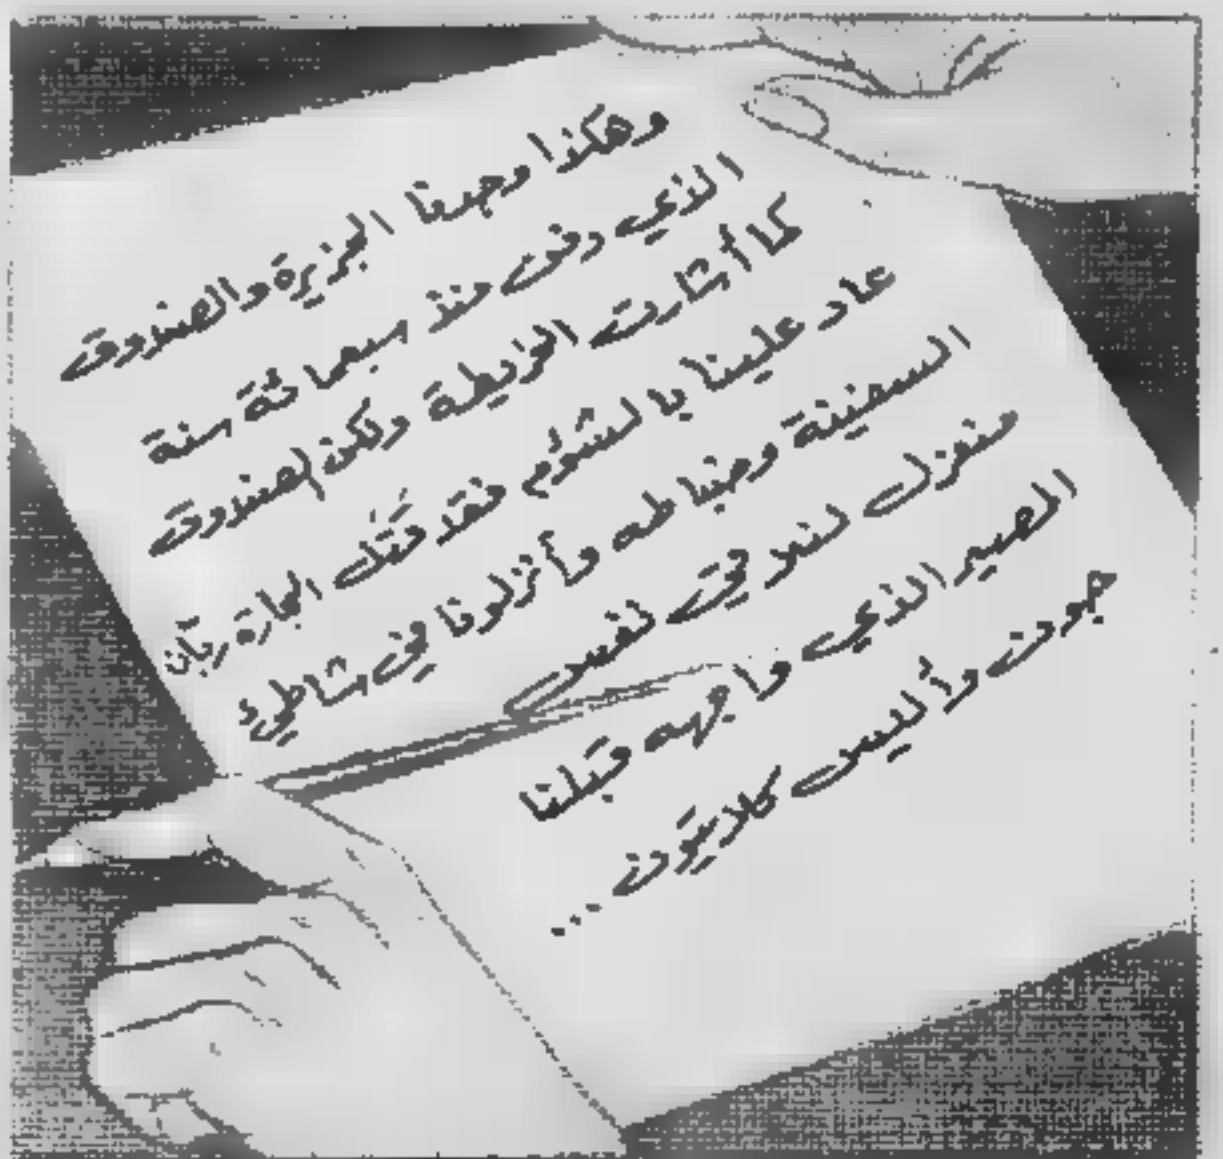 وهكذا وجدنا الجزيرة والصندوق
الذي دفن منذ سبعمائة سنة
كما أشارت الخريطة ولكن الصندوق
عاد علينا بالشؤم فقد قَتَل البحارة ربّان
السفينة وضباطه وأنزلونا في شاطئ
منعزل لنلاقي نفس
المصير الذي واجهه قبلنا
جون وأليس كلايتون ...